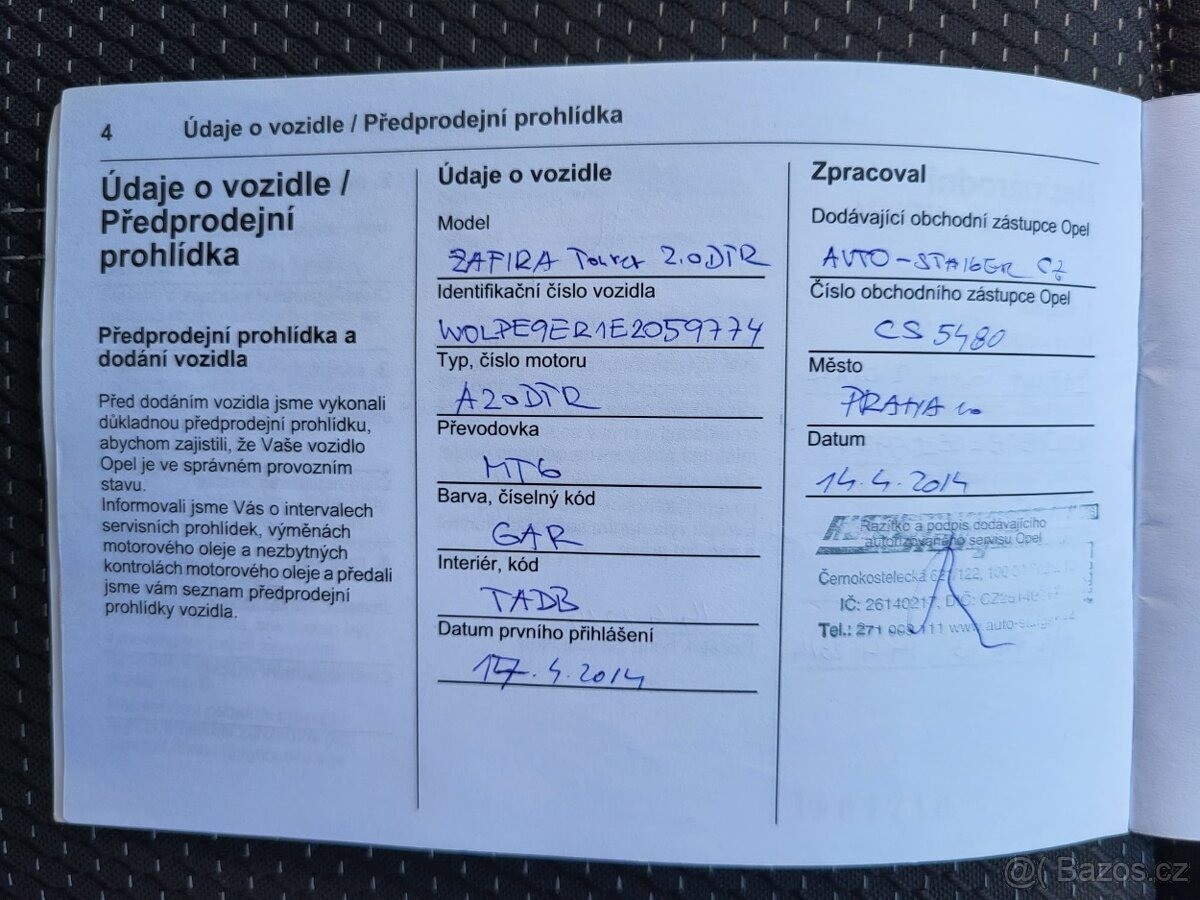 4
Údaje o vozidle / Předprodejní prohlídka
Údaje o vozidle /
Předprodejní
prohlídka
Předprodejní prohlídka a
dodání vozidla
Před dodáním vozidla jsme vykonali
důkladnou předprodejní prohlídku,
abychom zajistili, že Vaše vozidlo
Opel je ve správném provozním
stavu.
Informovali jsme Vás o intervalech
servisních prohlídek, výměnách
motorového oleje a nezbytných
kontrolách motorového oleje a předali
jsme vám seznam předprodejní
prohlídky vozidla.
Údaje o vozidle
Model
ZAFIRA Tourer 2.0DTR
Identifikační číslo vozidla
WOLPE9ER1E2059774
Typ, číslo motoru
A20DTR
Převodovka
MT6
Barva, číselný kód
GAR
Interiér, kód
TADB
Datum prvního přihlášení
17.4.2014
Zpracoval
Dodávající obchodní zástupce Opel
AUTO-STAIGER CZ
Číslo obchodního zástupce Opel
CS 5480
Město
PRAHA 10
Datum
14.4.2014
Razítko a podpis dodávajícího
autorizovaného servisu Opel
Černokostelecká
IČ: 26140217, DIČ:
Tel.: 271
@( Bazos.cz